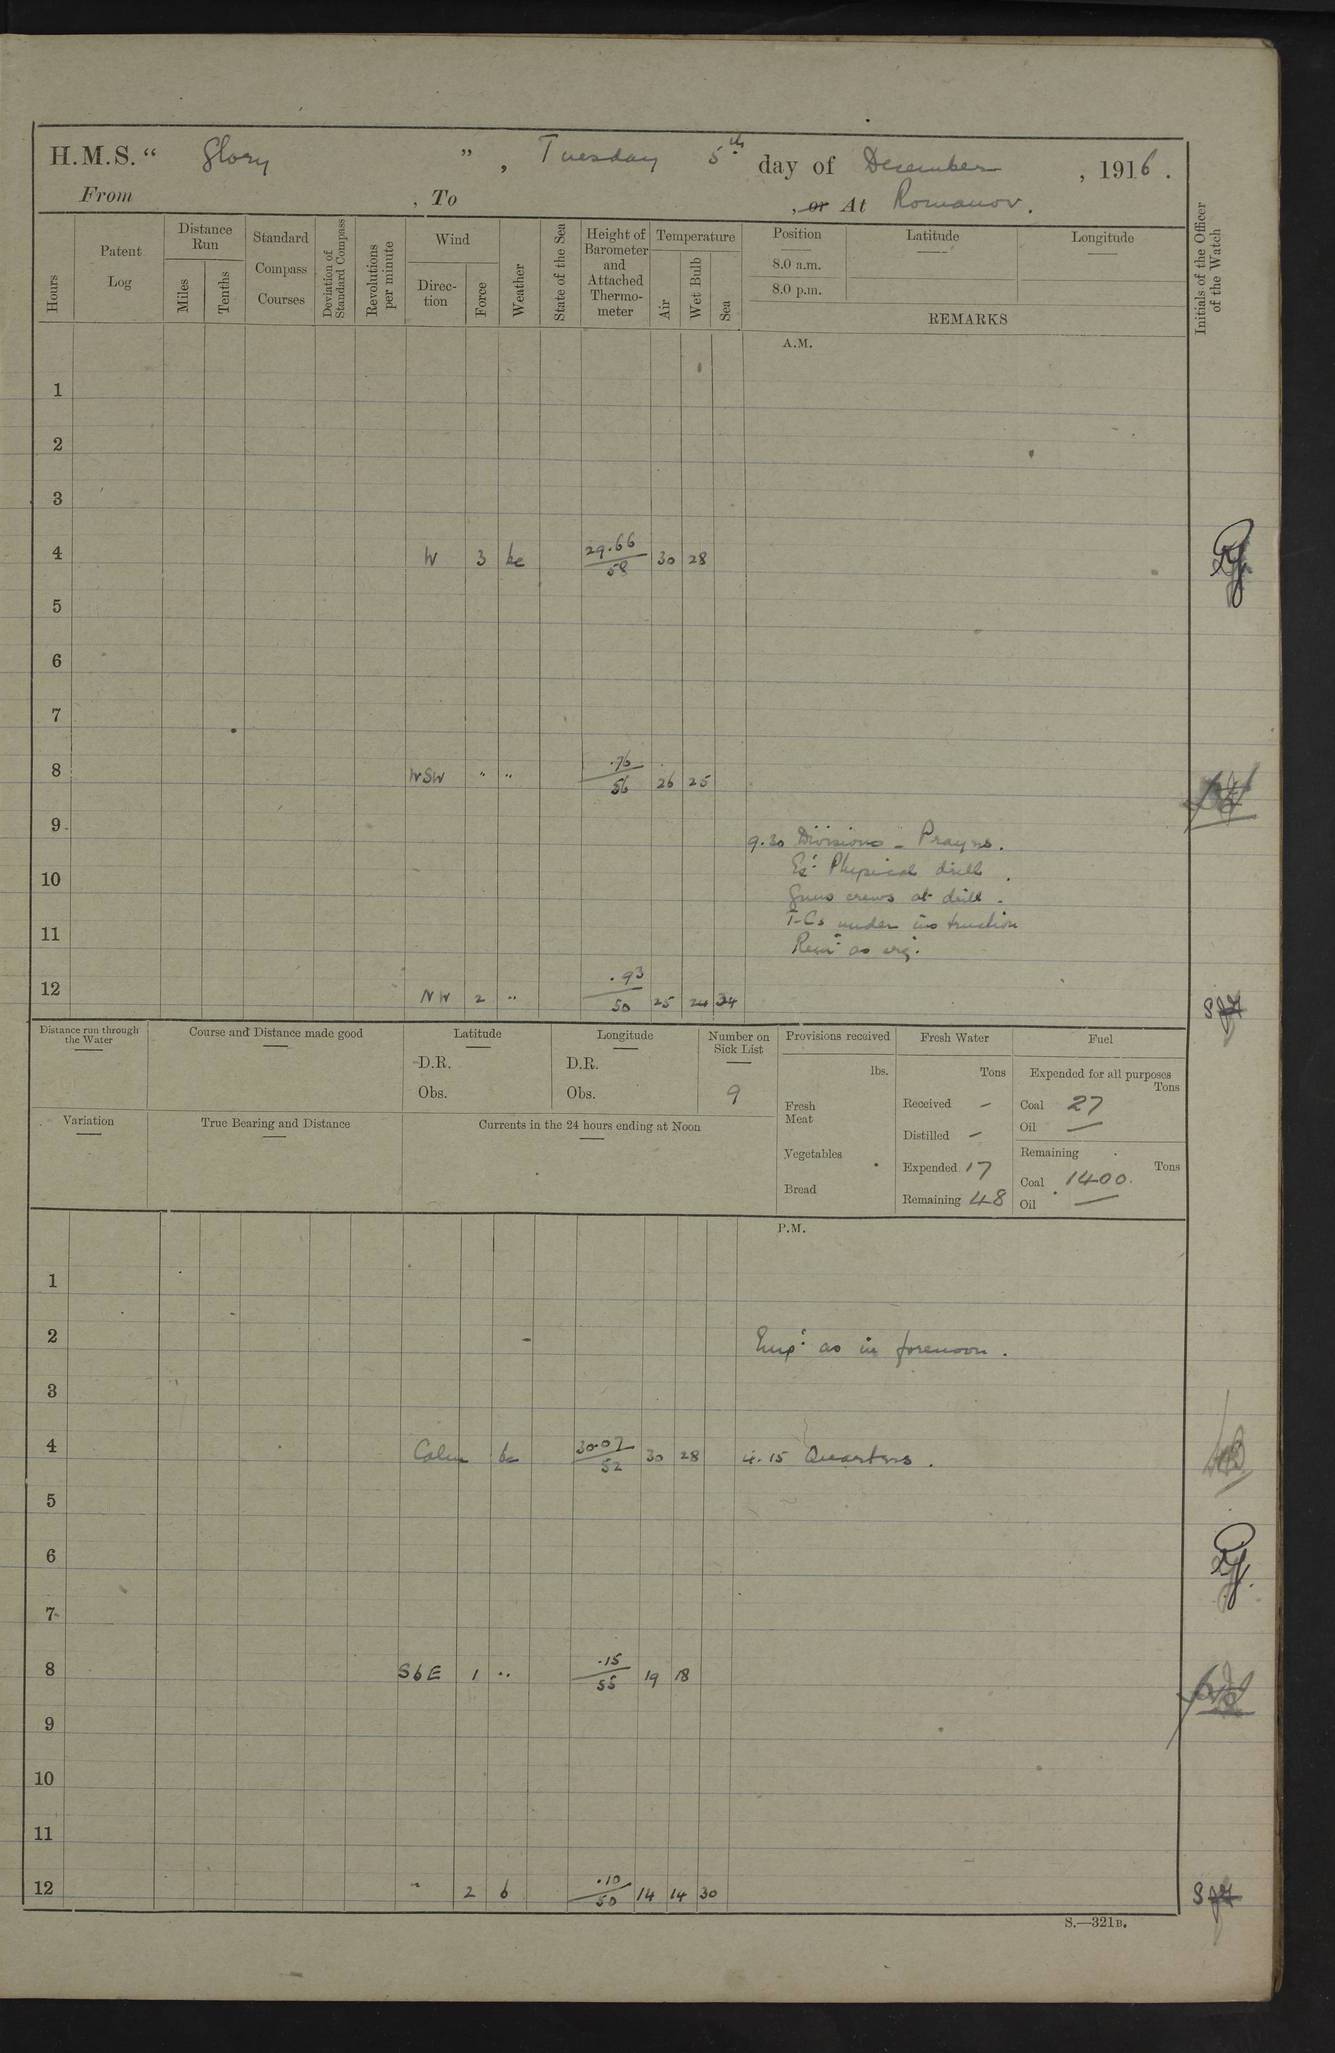 H.M.S. “ Glory ” , Tuesday 5th day of December , 1916 .
From , To , or At Romanov .
Hours
Patent Log
Distance Run
Miles
Tenths
Standard Compass Courses
Deviation of Standard Compass
Revolutions per minute
Wind
Direc-tion
Force
Weather
State of the Sea
Height of Barometer and Attached Thermo-meter
Temperature
Air
Wet Bulb
Sea
Position
8.0 a.m.
8.0 p.m.
Latitude
Longitude
REMARKS
Initials of the Officer of the Watch
A.M.
1
2
3
4 W 3 bc 29.66 58 30 28
5
6
7
8 WSW " " .76 56 26 25
9
9.30 Divisions - Prayrs.
Ex: Physical drill .
10
Guns crews at drill .
T-Cs under instruction
11
Remr as reqr.
12 NW 2 " .93 50 25 24 34
Distance run through the Water
Course and Distance made good
Latitude
D.R.
Obs.
Longitude
D.R.
Obs.
Number on Sick List
9
Provisions received
lbs.
Fresh Meat
Vegetables
Bread
Fresh Water
Tons
Received -
Distilled -
Expended 17
Remaining 48
Fuel
Expended for all purposes
Tons
Coal 27
Oil —
Remaining
Tons
Coal 1400.
Oil —
Variation
True Bearing and Distance
Currents in the 24 hours ending at Noon
P.M.
1
2 Emp: as in forenoon .
3
4 Calm bc 30.07 52 30 28 4.15 Quarters .
5
6
7
8 SbE 1 " .15 55 19 18
9
10
11
12 " 2 b .10 50 14 14 30
S.—321B.